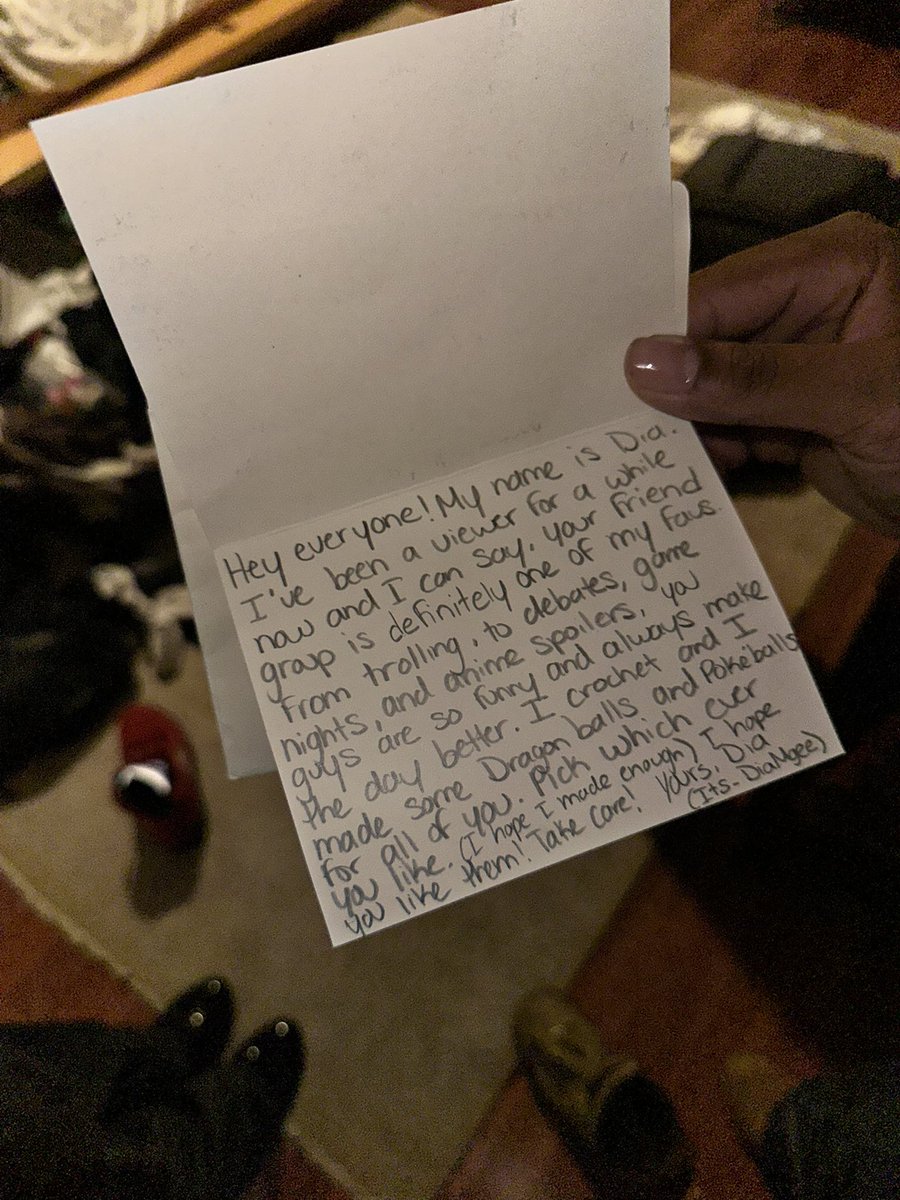 Hey everyone! My name is Dia.
I've been a viewer for a while
now and I can say, your friend
group is definitely one of my favs.
From trolling, to debates, game
nights, and anime spoilers, you
guys are so funny and always make
the day better. I crochet and I
made some Dragon balls and Pokéballs
for all of you. Pick which ever
you like. (I hope I made enough) I hope
you like them! Take care! Yours, Dia
(Its-DiaMgee)